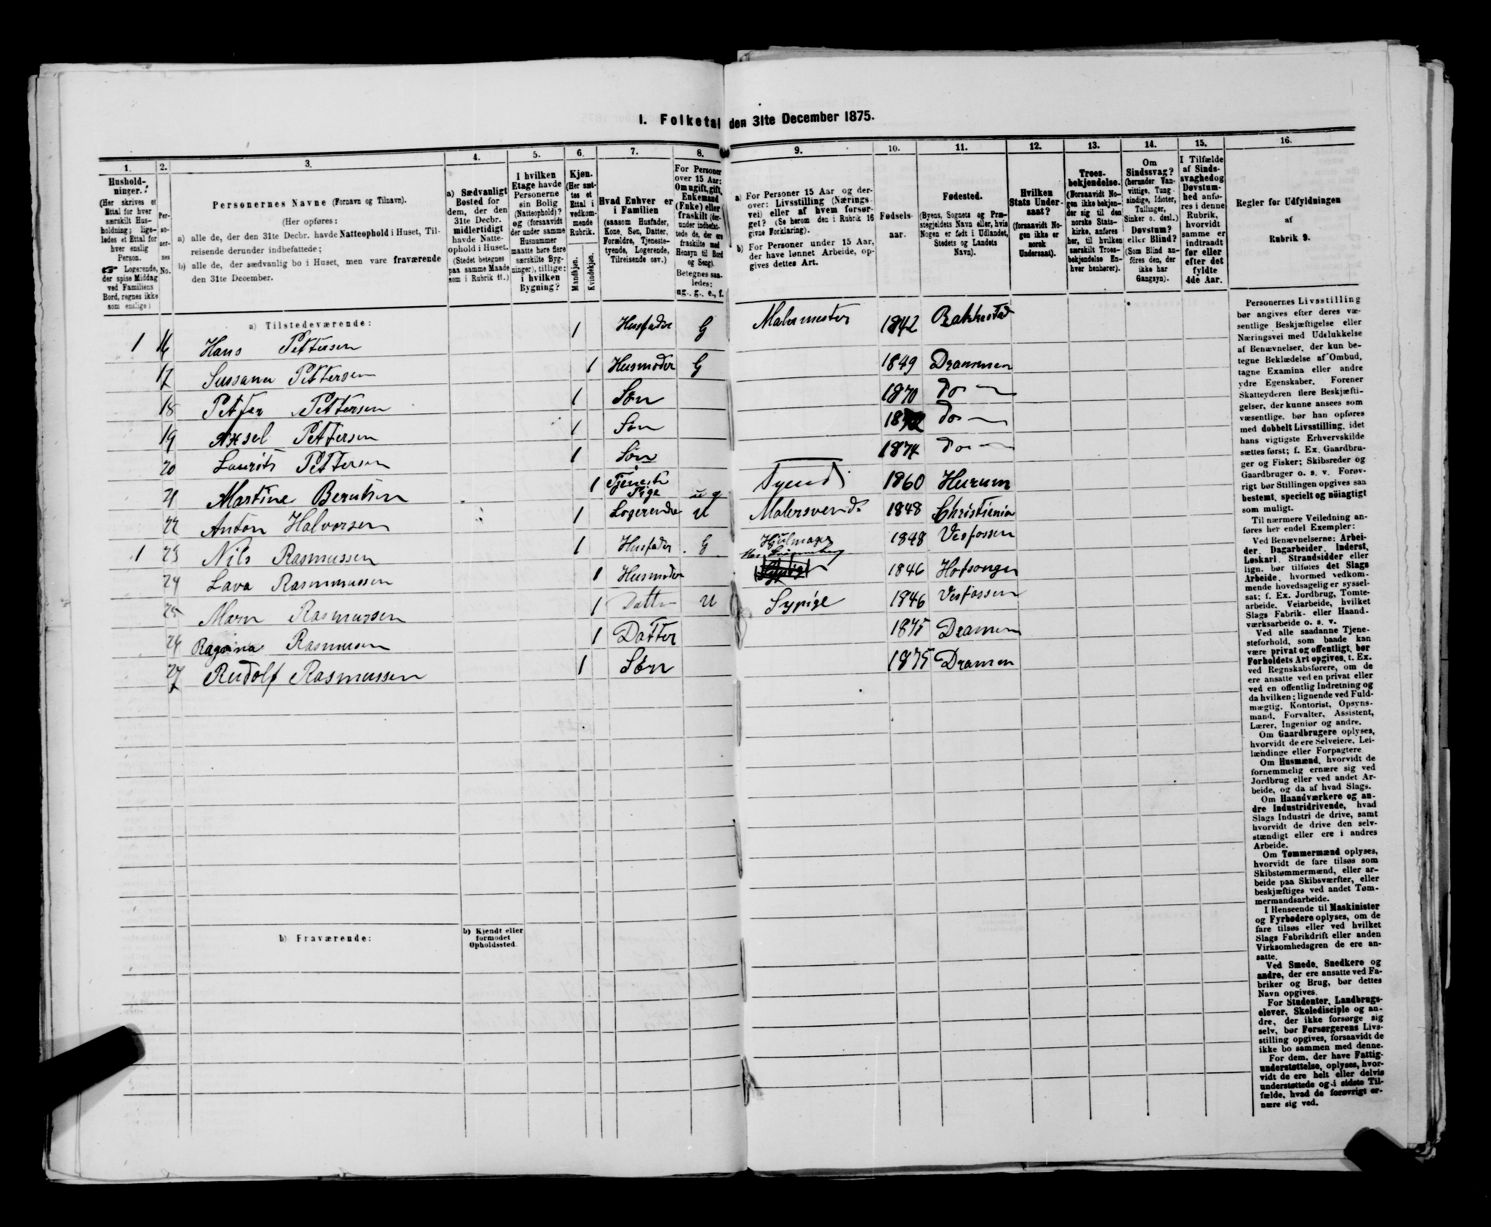 I. Folketal den 31te December 1875.
1. 2. 3. 4. 5. 6. 7. 8. 9. 10. 11. 12. 13. 14. 15. 16.
Husholdninger.
(Her skrives et Ettal for hver særskilt Husholdning; ligeledes et Ettal for hver enslig Person.
Logerende, der spise Middag ved Familiens Bord, regnes ikke som enslige)
Personernes No.
Personernes Navne (Fornavn og Tilnavn).
(Her opføres:
a) alle de, der den 31te Decbr. havde Natteophold i Huset, Tilreisende derunder indbefattede;
b) alle de, der sædvanlig bo i Huset, men vare fraværende den 31te December.
a) Sædvanligt Bosted for dem, der den 31te Decbr. midlertidigt havde Natteophold i Huset.
(Stedet betegnes paa samme Maade som i Rubrik 11.)
I hvilken Etage havde Personerne sin Bolig (Natteophold)? og (forsaavidt der under samme Husnummer maatte høre flere særskilte Bygninger), tillige: i hvilken Bygning?
Kjøn.
(Her sættes et Ettal i vedkommende Rubrik.
Mandkjøn. Kvindekjøn.
Hvad Enhver er i Familien
(saasom Husfader, Kone, Søn, Datter, Forældre, Tjenestetyende, Logerende, Tilreisende osv.)
For Personer over 15 Aar: Om ugift, gift, Enkemand (Enke) eller fraskilt (derunder indbefattede de, der ere fraskilte med Hensyn til Bord og Seng).
Betegnes saaledes: ug., g., e., f.
a) For Personer 15 Aar og derover: Livsstilling (Næringsvei) eller af hvem forsørget? (Se herom den i Rubrik 16 givne Forklaring).
b) For Personer under 15 Aar, der have lønnet Arbeide, opgives dettes Art.
Fødselsaar.
Fødested.
(Byens, Sognets og Præstegjeldets Navn eller, hvis Nogen er født i Udlandet, Stedets og Landets Navn).
Hvilken Stats Undersaat?
(forsaavidt Nogen ikke er norsk Undersaat).
Troesbekjendelse.
(Forsaavidt Nogen ikke bekjender sig til den norske Statskirke, anføres her, til hvilken særskilt Troesbekjendelse Enhver henhører).
Om Sindssvag? (herunder Vanvittige, Tungsindige, Idioter, Tullinger, Sinker o. desl.) Døvstum? eller Blind? (Som Blind anføres den, der ikke har Gangsyn).
I Tilfælde af Sindssvaghed og Døvstumhed anføres i denne Rubrik, hvorvidt samme er indtraadt før eller efter det fyldte 4de Aar.
Regler for Udfyldningen af Rubrik 9.
a) Tilstedeværende:
1 16 Hans Pettersen 1 Husfader G Malermester 1842 Bakkestad
17 Sussana Pettersen 1 Husmoder G 1849 Drammen
18 Petter Pettersen 1 Søn 1870 do
19 Aksel Pettersen 1 Søn 1872 do
20 Laurits Pettersen 1 Søn 1874 do
21 Martine Berntsen 1 Tjeneste Pige ug Tyend 1860 Hurum
22 Anton Halvorsen 1 Logerende U Malersvend 1848 Christiania
1 23 Nils Rasmussen 1 Husfader G Hjulmager 1848 Vesfossen
24 Lava Rasmussen 1 Husmoder 1846
25 Marn Rasmussen 1 Datter U Sypige 1846 Vesfossen
26 Ragina Rasmussen 1 Datter 1875 Dramen
27 Rudolf Rasmussen 1 Søn 1875 Dramen
b) Fraværende:
b) Kjendt eller formodet Opholdssted.
Personernes Livsstilling
bør angives efter deres væ-
sentlige Beskjæftigelse eller
Næringsvei med Udelukkelse
af Benævnelser, der kun be-
tegne Beklædelse af Ombud,
tagne Examina eller andre
ydre Egenskaber. Forener
Skatteyderen flere Beskjæfti-
gelser, der kunne ansees som
væsentlige, bør han opføres
med dobbelt Livsstilling, idet
hans vigtigste Erhvervskilde
sættes først; f. Ex. Gaardbru-
ger og Fisker; Skibsreder og
Gaardbruger o. s. v. Forøv-
rigt bør Stillingen opgives saa
bestemt, specielt og nøiagtigt
som muligt.
Til nærmere Veiledning an-
føres her endel Exempler:
Ved Benævnelserne: Arbei-
der, Dagarbeider, Inderst,
Løskarl, Strandsidder eller
lign. bør tilføies det Slags
Arbeide, hvormed vedkom-
mende hovedsagelig er syssel-
sat; f. Ex. Jordbrug, Tomte-
arbeide, Veiarbeide, hvilket
Slags Fabrik- eller Haand-
værksarbeide o. s. v.
Ved alle saadanne Tjene-
steforhold, som baade kan
være privat og offentligt, bør
Forholdets Art opgives, t. Ex.
ved Regnskabsførere, om de
ere ansatte ved en privat eller
ved en offentlig Indretning og
da hvilken; lignende ved Fuld-
mægtig, Kontorist, Opsyns-
mand, Forvalter, Assistent,
Lærer, Ingeniør og andre.
Om Gaardbrugere oplyses,
hvorvidt de ere Selveiere, Lei-
lændinge eller Forpagtere
Om Husmænd, hvorvidt de
fornemmelig ernære sig ved
Jordbrug eller ved andet Ar-
beide, og da af hvad Slags.
Om Haandværkere og an-
dre Industridrivende, hvad
Slags Industri de drive, samt
hvorvidt de drive den selv-
stændigt eller ere i andres
Arbeide.
Om Tømmermænd oplyses,
hvorvidt de fare tilsøs som
Skibstømmermænd, eller ar-
beide paa Skibsværfter, eller
beskjæftiges ved andet Tøm-
mermandsarbeide.
I Henseende til Maskinister
og Fyrbødere oplyses, om de
fare tilsøs eller ved hvilket
Slags Fabrikdrift eller anden
Virksomhedsgren de ere an-
satte.
Ved Smede, Snedkere og
andre, der ere ansatte ved Fa-
briker og Brug, bør dettes
Navn opgives.
For Studenter, Landbrugs-
elever, Skoledisciple og an-
dre, der ikke forsørge sig
selv, bør Forsørgerens Livs-
stilling opgives, forsaavidt de
ikke bo sammen med denne.
For dem, der have Fattig-
understøttelse, oplyses, hvor-
vidt de ere helt eller delvis
understøttede og i sidste Til-
fælde, hvad de forøvrigt er-
nære sig ved.